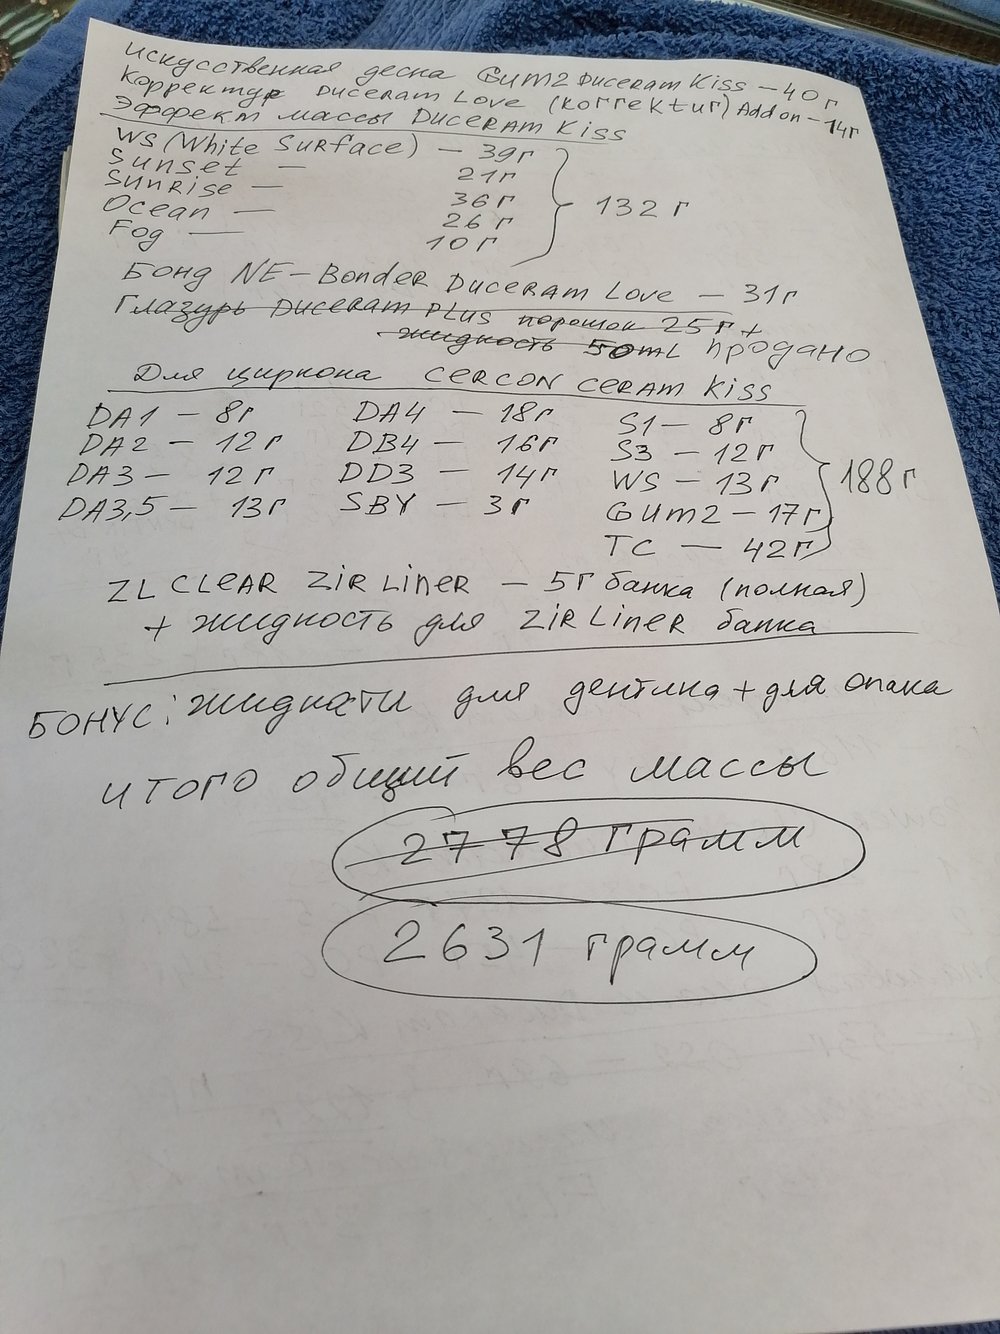 искусственная десна Gum2 Duceram Kiss – 40г
Корректур Duceram Love (Korrektur) Add on – 14г
Эффект массы Duceram Kiss
WS (White Surface) – 39г
Sunset – 21г
Sunrise – 36г
Ocean – 26г
Fog – 10г
132 г
Бонд NE-Bonder Duceram Love – 31г
Глазурь Duceram Plus порошок 25г +
жидкость 50mL продано
Для циркона CERCON CERAM Kiss
DA1 – 8г DA4 – 18г S1 – 8г
DA2 – 12г DB4 – 16г S3 – 12г
DA3 – 12г DD3 – 14г WS – 13г
DA3,5 – 13г SBY – 3г Gum2 – 17г
TC – 42г
188 г
ZL CLEAR ZIR LINER – 5г банка (полная)
+ жидкость для ZIR LINER банка
БОНУС: жидкости для дентина + для опака
итого общий вес массы
2778 грамм
2631 грамм